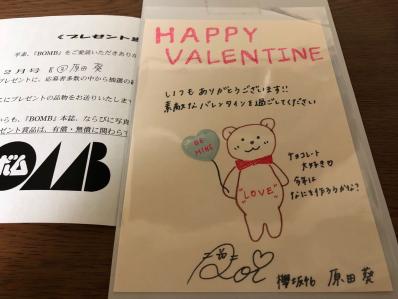 《プレゼント
平素、『BOMB』をご愛読いただきあり
2月号 ③原田 葵
プレゼントに、応募者多数の中から抽選の
にプレゼントの品物をお送りいたしま
からも、『BOMB』本誌、ならびに写真
ゼント賞品は、有償・無償に関わらず
ボム
BOMB
HAPPY
VALENTINE
いつもありがとうございます!!
素敵なバレンタインを過ごしてください
BE
MINE
チョコレート
大好き♡
今年は
なにを作ろうかな?
"LOVE"
欅坂46 原田 葵